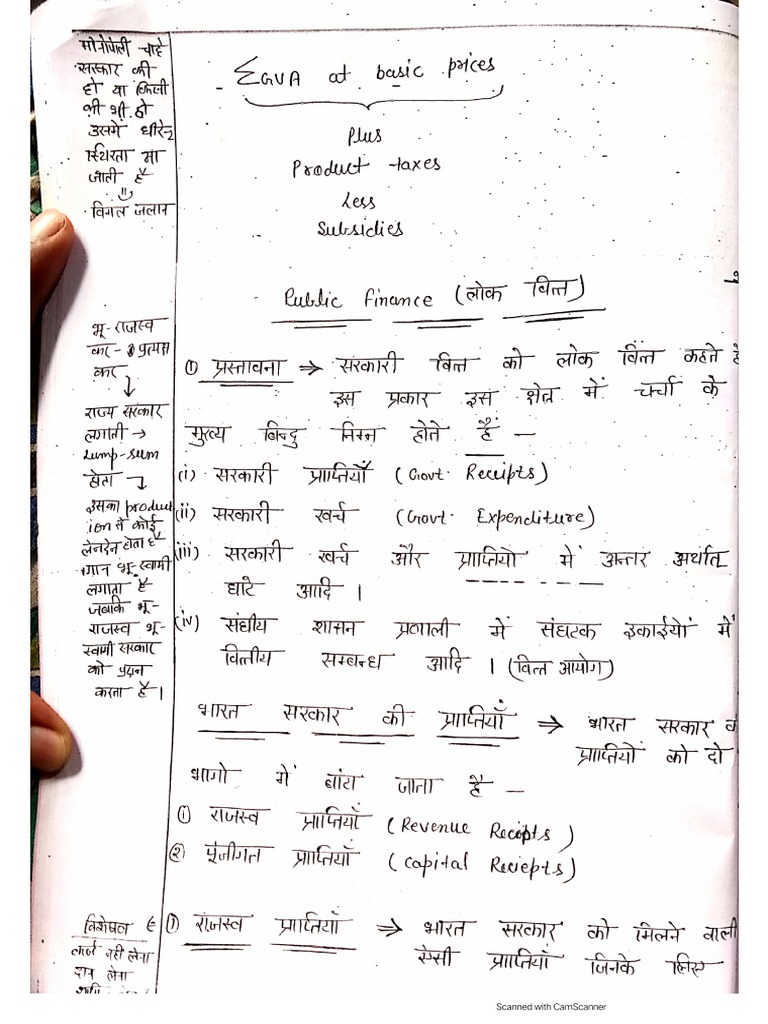 मोनोपोली चाहे
सरकार की
हो या किसी
की भी हो
उसमें धीरे2
स्थिरता आ
जाती है
विमल जलान
ΣGVA at basic prices
Plus
Product taxes
Less
Subsidies
Public Finance (लोक वित्त)
भू-राजस्व
कर - प्रत्यक्ष
कर
राज्य सरकार
लगाती →
Lump-sum
होता
इसका product
ion से कोई
लेनदेन होता है
लगान भू-स्वामी
लगाता है
जबकि भू-
राजस्व भू-
स्वामी सरकार
को प्रदान
करता है।
① प्रस्तावना ⇒ सरकारी वित्त को लोक वित्त कहते
इस प्रकार इस क्षेत्र में चर्चा के
मुख्य बिन्दु निम्न होते हैं —
(i) सरकारी प्राप्तियाँ (Govt. Receipts)
(ii) सरकारी खर्च (Govt. Expenditure)
(iii) सरकारी खर्च और प्राप्तियो में अन्तर अर्थात
घाटे आदि ।
(iv) संघीय शासन प्रणाली में संघटक इकाईयों में
वित्तीय सम्बन्ध आदि । (वित्त आयोग)
भारत सरकार की प्राप्तियाँ ⇒ भारत सरकार
प्राप्तियों को दो
भागो में बांटा जाता है —
① राजस्व प्राप्तियाँ (Revenue Reciepts)
② पूंजीगत प्राप्तियाँ (Capital Reciepts)
① राजस्व प्राप्तियाँ ⇒ भारत सरकार को मिलने वाली
ऐसी प्राप्तियाँ जिनके लिए
विशेषत
कर्ज नही लेना
दान लेना
Scanned with CamScanner